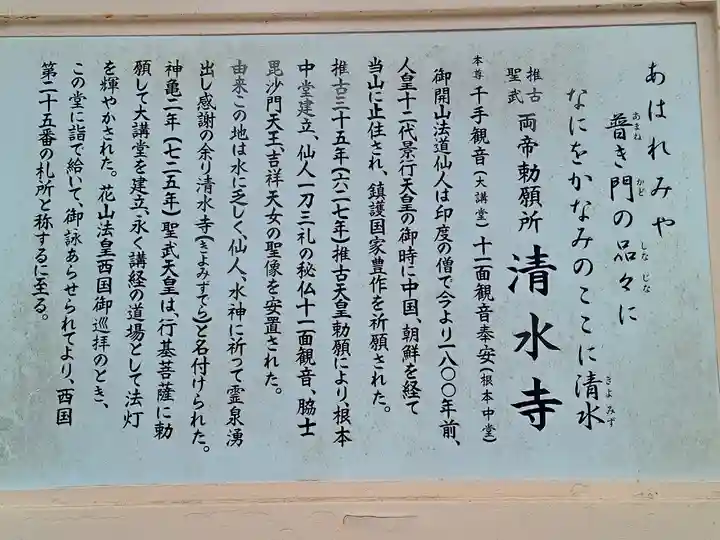 あはれみや
普き門の品々に
あまね かど しな じな
なにをかなみのここに清水
きよ みず
推古
聖武 両帝勅願所 清水寺
本尊 千手観音(大講堂)十一面観音奉安(根本中堂)
御開山法道仙人は印度の僧で今より一八〇〇年前、
人皇十二代景行天皇の御時に中国、朝鮮を経て
当山に止住され、鎮護国家豊作を祈願された。
推古三十五年(六二七年)推古天皇勅願により、根本
中堂建立、仙人一刀三礼の秘仏十一面観音、脇士
毘沙門天王、吉祥天女の聖像を安置された。
由来この地は水に乏しく、仙人、水神に祈って霊泉湧
出し感謝の余り清水寺(きよみずでら)と名付けられた。
神亀二年(七二五年)聖武天皇は、行基菩薩に勅
願して大講堂を建立、永く講経の道場として法灯
を輝やかされた。花山法皇西国御巡拝のとき、
この堂に詣で給いて、御詠あらせられてより、西国
第二十五番の札所と称するに至る。